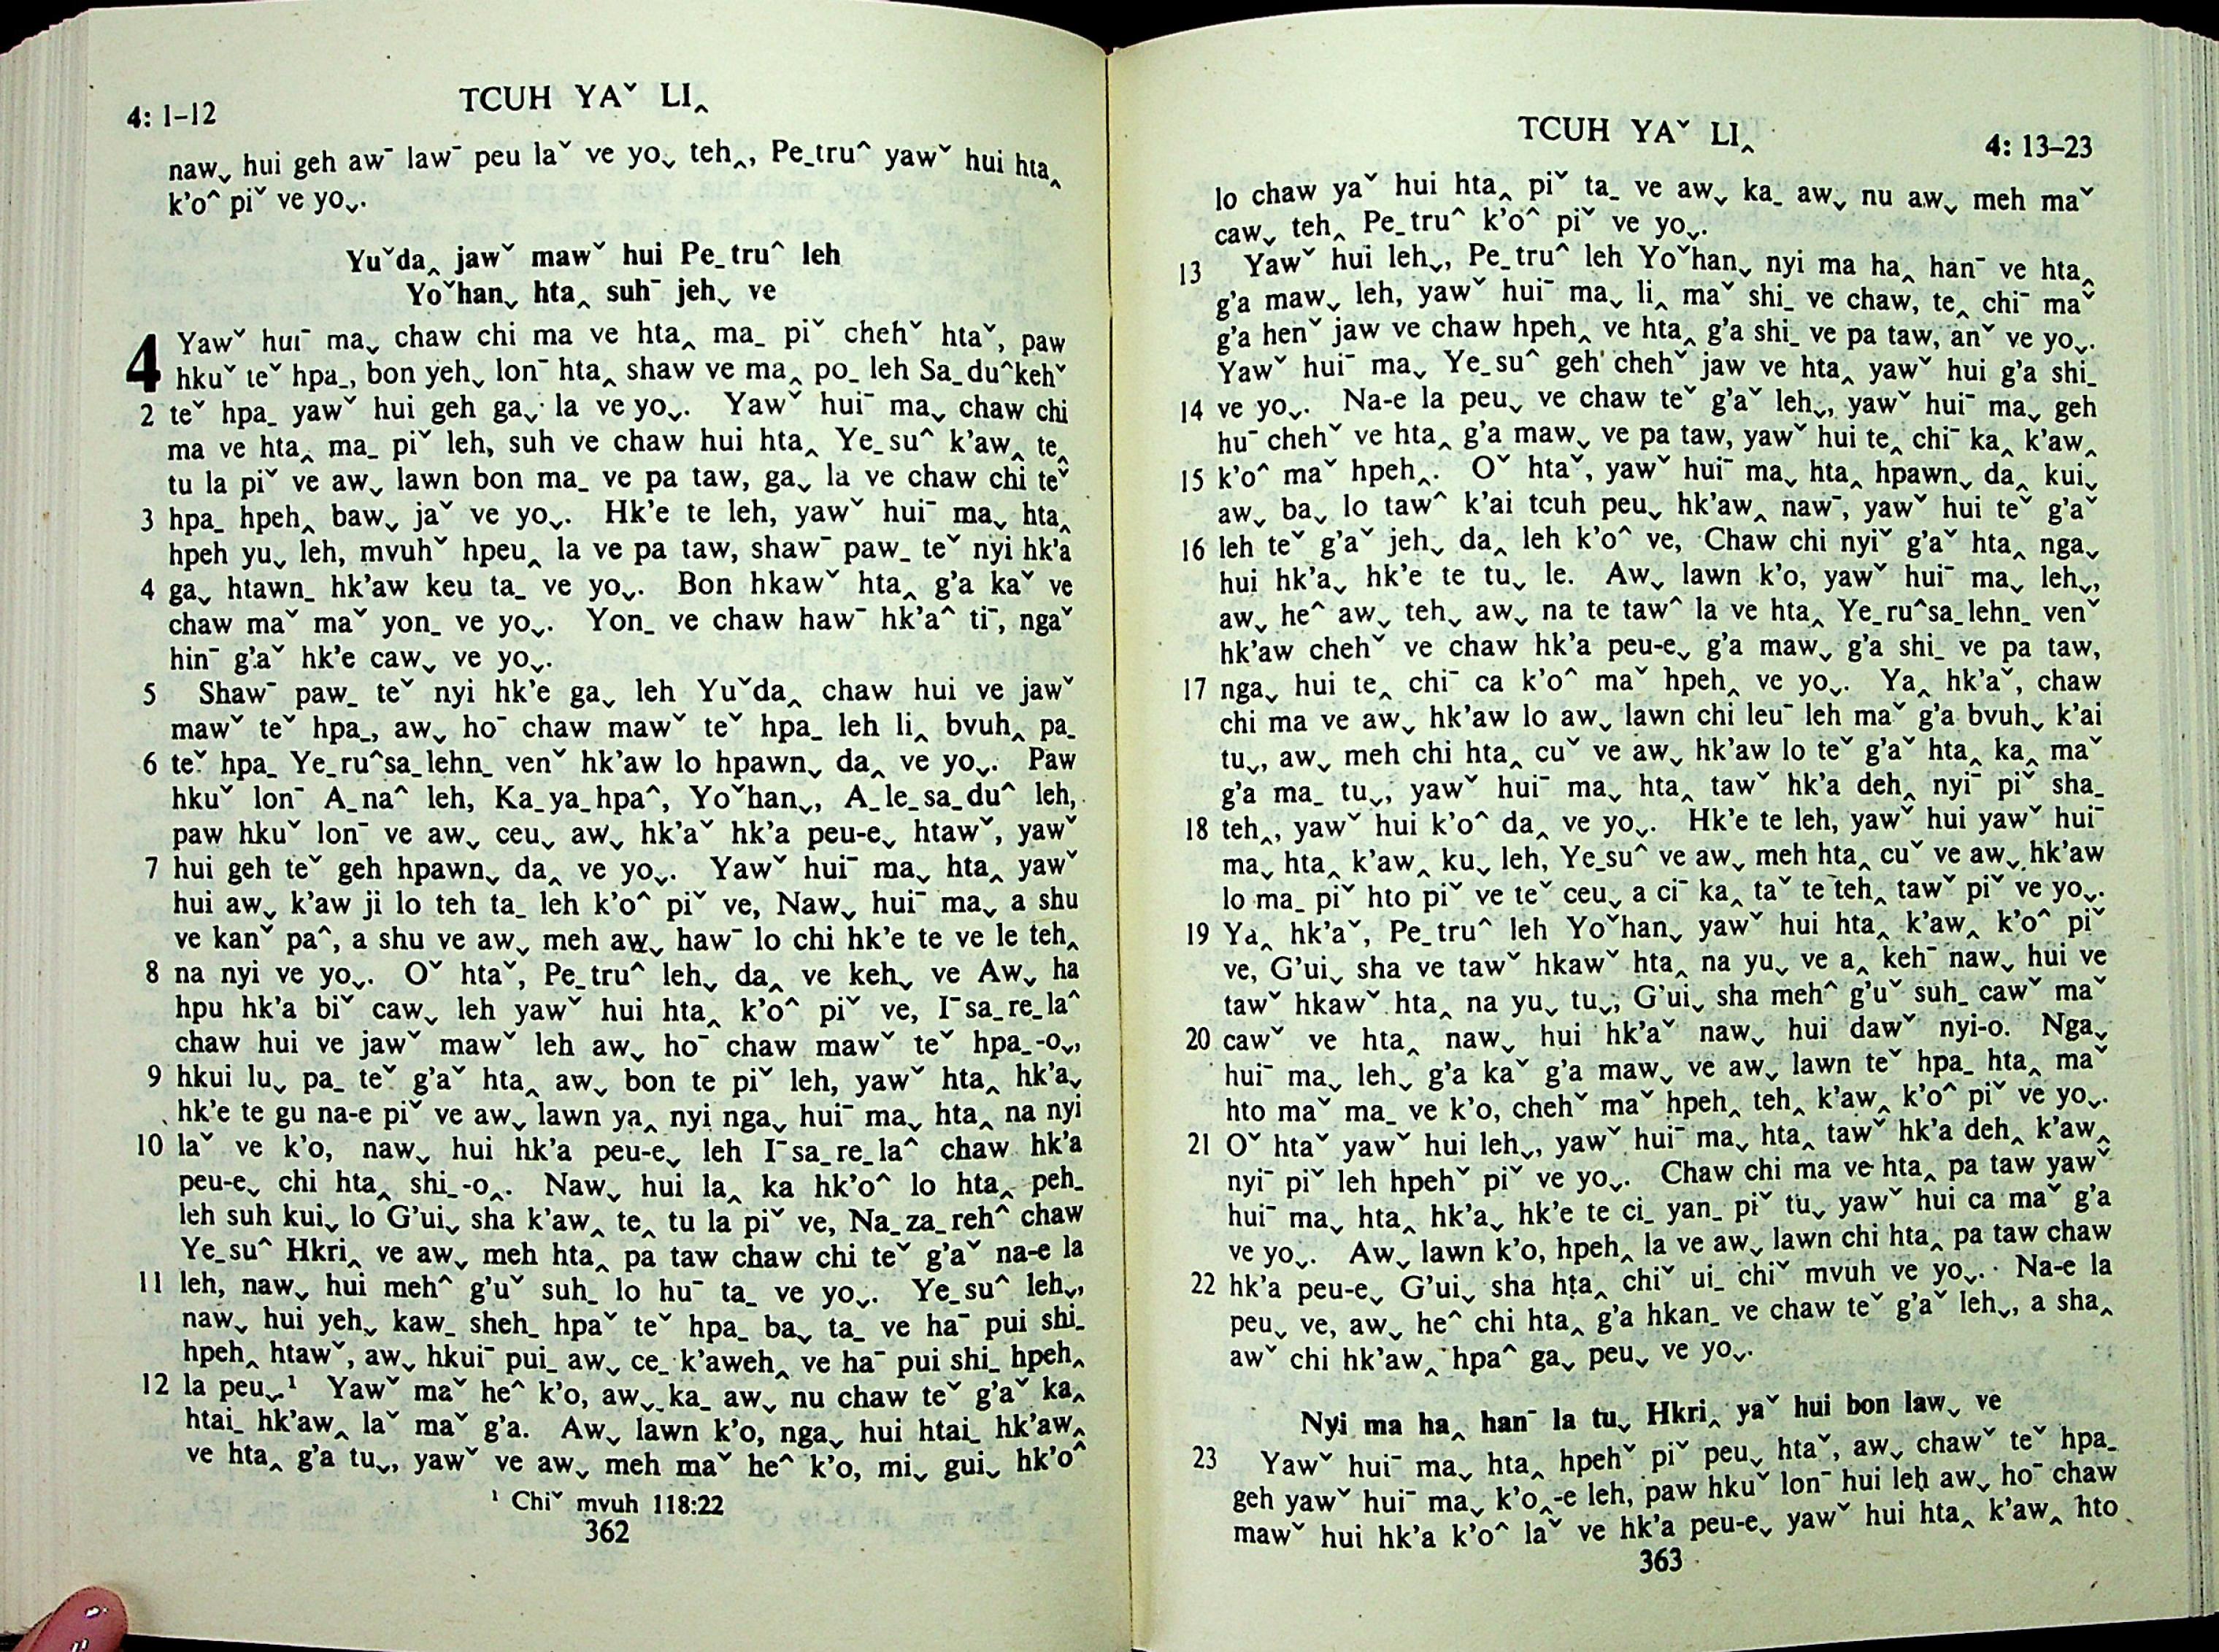 4: 1–12
TCUH YAˇ LI‸
nawˬ hui geh awˉ lawˉ peu laˇ ve yoˬ teh‸, Pe_truˆ yawˇ hui hta‸
k’oˆ piˇ ve yoˬ.
Yuˇda‸ jawˇ mawˇ hui Pe_truˆ leh
Yoˇhanˬ hta‸ suhˉ jehˬ ve
4 Yawˇ huiˉ maˬ chaw chi ma ve hta‸ ma_ piˇ chehˇ htaˇ, paw
hkuˇ teˇ hpa_, bon yehˬ lonˉ hta‸ shaw ve ma‸ po_ leh Sa_duˆkehˇ
2 teˇ hpa_ yawˇ hui geh gaˬ la ve yoˬ. Yawˇ huiˉ maˬ chaw chi
ma ve hta‸ ma_ piˇ leh, suh ve chaw hui hta‸ Ye_suˆ k’aw‸ te‸
tu la piˇ ve awˬ lawn bon ma_ ve pa taw, gaˬ la ve chaw chi teˇ
3 hpa_ hpeh‸ bawˬ jaˇ ve yoˬ. Hk’e te leh, yawˇ huiˉ maˬ hta‸
hpeh yuˬ leh, mvuhˇ hpeu‸ la ve pa taw, shawˉ paw_ teˇ nyi hk’a
4 gaˬ htawn_ hk’aw keu ta_ ve yoˬ. Bon hkawˇ hta‸ g’a kaˇ ve
chaw maˇ maˇ yon_ ve yoˬ. Yon_ ve chaw hawˉ hk’aˆ tiˉ, ngaˇ
hinˉ g’aˇ hk’e cawˬ ve yoˬ.
5 Shawˉ paw_ teˇ nyi hk’e gaˬ leh Yuˇda‸ chaw hui ve jawˇ
mawˇ teˇ hpa_, awˬ hoˉ chaw mawˇ teˇ hpa_ leh li‸ bvuh‸ pa_
6 teˇ hpa_ Ye_ruˆsa_lehn_ venˇ hk’aw lo hpawnˬ da‸ ve yoˬ. Paw
hkuˇ lonˉ A_naˆ leh, Ka_ya_hpaˆ, Yoˇhanˬ, A_le_sa_duˆ leh,
paw hkuˇ lonˉ ve awˬ ceuˬ awˬ hk’aˇ hk’a peu-eˬ htawˇ, yawˇ
7 hui geh teˇ geh hpawnˬ da‸ ve yoˬ. Yawˇ huiˉ maˬ hta‸ yawˇ
hui awˬ k’aw ji lo teh ta_ leh k’oˆ piˇ ve, Nawˬ huiˉ maˬ a shu
ve kanˇ paˆ, a shu ve awˬ meh awˬ hawˉ lo chi hk’e te ve le teh‸
8 na nyi ve yoˬ. Oˇ htaˇ, Pe_truˆ lehˬ da‸ ve kehˬ ve Awˬ ha
hpu hk’a biˇ cawˬ leh yawˇ hui hta‸ k’oˆ piˇ ve, Iˉsa_re_laˆ
chaw hui ve jawˇ mawˇ leh awˬ hoˉ chaw mawˇ teˇ hpa_-oˬ,
9 hkui luˬ pa_ teˇ g’aˇ hta‸ awˬ bon te piˇ leh, yawˇ hta‸ hk’aˬ
hk’e te gu na-e piˇ ve awˬ lawn ya‸ nyi ngaˬ huiˉ maˬ hta‸ na nyi
10 laˇ ve k’o, nawˬ hui hk’a peu-eˬ leh Iˉsa_re_laˆ chaw hk’a
peu-eˬ chi hta‸ shi_-o‸. Nawˬ hui la‸ ka hk’oˆ lo hta‸ peh_
leh suh kuiˬ lo G’uiˬ sha k’aw‸ te‸ tu la piˇ ve, Na_za_rehˆ chaw
Ye_suˆ Hkri‸ ve awˬ meh hta‸ pa taw chaw chi teˇ g’aˇ na-e la
11 leh, nawˬ hui mehˆ g’uˇ suh_ lo huˉ ta_ ve yoˬ. Ye_suˆ lehˬ,
nawˬ hui yehˬ kaw_ sheh_ hpaˇ teˇ hpa_ baˬ ta_ ve haˉ pui shi_
hpeh‸ htawˇ, awˬ hkuiˉ pui_ awˬ ce_ k’aweh‸ ve haˉ pui shi_ hpeh‸
12 la peuˬ.¹ Yawˇ maˇ heˆ k’o, awˬ ka_ awˬ nu chaw teˇ g’aˇ ka‸
htai_ hk’aw‸ laˇ maˇ g’a. Awˬ lawn k’o, ngaˬ hui htai_ hk’aw‸
ve hta‸ g’a tuˬ, yawˇ ve awˬ meh maˇ heˆ k’o, miˬ guiˬ hk’oˆ
¹ Chiˇ mvuh 118:22
362
TCUH YAˇ LI‸
4: 13–23
lo chaw yaˇ hui hta‸ piˇ ta_ ve awˬ ka_ awˬ nu awˬ meh maˇ
cawˬ teh‸ Pe_truˆ k’oˆ piˇ ve yoˬ.
13 Yawˇ hui lehˬ, Pe_truˆ leh Yoˇhanˬ nyi ma ha‸ hanˉ ve hta‸
g’a mawˬ leh, yawˇ huiˉ maˬ li‸ maˇ shi_ ve chaw, te‸ chiˉ maˇ
g’a henˇ jaw ve chaw hpeh‸ ve hta‸ g’a shi_ ve pa taw, anˇ ve yoˬ.
Yawˇ huiˉ maˬ Ye_suˆ geh chehˇ jaw ve hta‸ yawˇ hui g’a shi_
14 ve yoˬ. Na-e la peuˬ ve chaw teˇ g’aˇ lehˬ, yawˇ huiˉ maˬ geh
huˉ chehˇ ve hta‸ g’a mawˬ ve pa taw, yawˇ hui te‸ chiˉ ka‸ k’aw‸
15 k’oˆ maˇ hpeh‸. Oˇ htaˇ, yawˇ huiˉ maˬ hta‸ hpawnˬ da‸ kuiˬ
awˬ baˬ lo tawˆ k’ai tcuh peuˬ hk’aw‸ nawˉ, yawˇ hui teˇ g’aˇ
16 leh teˇ g’aˇ jehˬ da‸ leh k’oˆ ve, Chaw chi nyiˇ g’aˇ hta‸ ngaˬ
hui hk’aˬ hk’e te tuˬ le. Awˬ lawn k’o, yawˇ huiˉ maˬ lehˬ,
awˬ heˆ awˬ tehˬ awˬ na te tawˆ la ve hta‸ Ye_ruˆsa_lehn_ venˇ
hk’aw chehˇ ve chaw hk’a peu-eˬ g’a mawˬ g’a shi_ ve pa taw,
17 ngaˬ hui te‸ chiˉ ca k’oˆ maˇ hpeh‸ ve yoˬ. Ya‸ hk’aˇ, chaw
chi ma ve awˬ hk’aw lo awˬ lawn chi leuˉ leh maˇ g’a bvuhˬ k’ai
tuˬ, awˬ meh chi hta‸ cuˇ ve awˬ hk’aw lo teˇ g’aˇ hta‸ ka‸ maˇ
g’a ma_ tuˬ, yawˇ huiˉ maˬ hta‸ tawˇ hk’a deh‸ nyiˉ piˇ sha_
18 teh‸, yawˇ hui k’oˆ da‸ ve yoˬ. Hk’e te leh, yawˇ hui yawˇ huiˉ
maˬ hta‸ k’aw‸ kuˬ leh, Ye_suˆ ve awˬ meh hta‸ cuˇ ve awˬ hk’aw
lo ma_ piˇ hto piˇ ve teˇ ceuˬ a ciˉ ka‸ taˇ te teh‸ tawˇ piˇ ve yoˬ.
19 Ya‸ hk’aˇ, Pe_truˆ leh Yoˇhanˬ yawˇ hui hta‸ k’aw‸ k’oˆ piˇ
ve, G’uiˬ sha ve tawˇ hkawˇ hta‸ na yuˬ ve a‸ kehˉ nawˬ hui ve
tawˇ hkawˇ hta‸ na yuˬ tuˬ, G’uiˬ sha mehˆ g’uˇ suh_ cawˇ maˇ
20 cawˇ ve hta‸ nawˬ hui hk’aˇ nawˬ hui dawˇ nyi-o. Ngaˬ
huiˉ maˬ lehˬ g’a kaˇ g’a mawˬ ve awˬ lawn teˇ hpa_ hta‸ maˇ
hto maˇ ma_ ve k’o, chehˇ maˇ hpeh‸ teh‸ k’aw‸ k’oˆ piˇ ve yoˬ.
21 Oˇ htaˇ yawˇ hui lehˬ, yawˇ huiˉ maˬ hta‸ tawˇ hk’a deh‸ k’aw‸
nyiˉ piˇ leh hpehˇ piˇ ve yoˬ. Chaw chi ma ve hta‸ pa taw yawˇ
huiˉ maˬ hta‸ hk’aˬ hk’e te ci_ yan_ piˇ tuˬ yawˇ hui ca maˇ g’a
ve yoˬ. Awˬ lawn k’o, hpeh‸ la ve awˬ lawn chi hta‸ pa taw chaw
22 hk’a peu-eˬ G’uiˬ sha hta‸ chiˇ ui_ chiˇ mvuh ve yoˬ. Na-e la
peuˬ ve, awˬ heˆ chi hta‸ g’a hkan_ ve chaw teˇ g’aˇ lehˬ, a sha‸
awˇ chi hk’aw‸ hpaˆ gaˬ peuˬ ve yoˬ.
Nyi ma ha‸ hanˉ la tuˬ Hkri‸ yaˇ hui bon lawˬ ve
23 Yawˇ huiˉ maˬ hta‸ hpehˇ piˇ peuˬ htaˇ, awˬ chawˇ teˇ hpa_
geh yawˇ huiˉ maˬ k’o‸-e leh, paw hkuˇ lonˉ hui leh awˬ hoˉ chaw
mawˇ hui hk’a k’oˆ laˇ ve hk’a peu-eˬ yawˇ hui hta‸ k’aw‸ hto
363